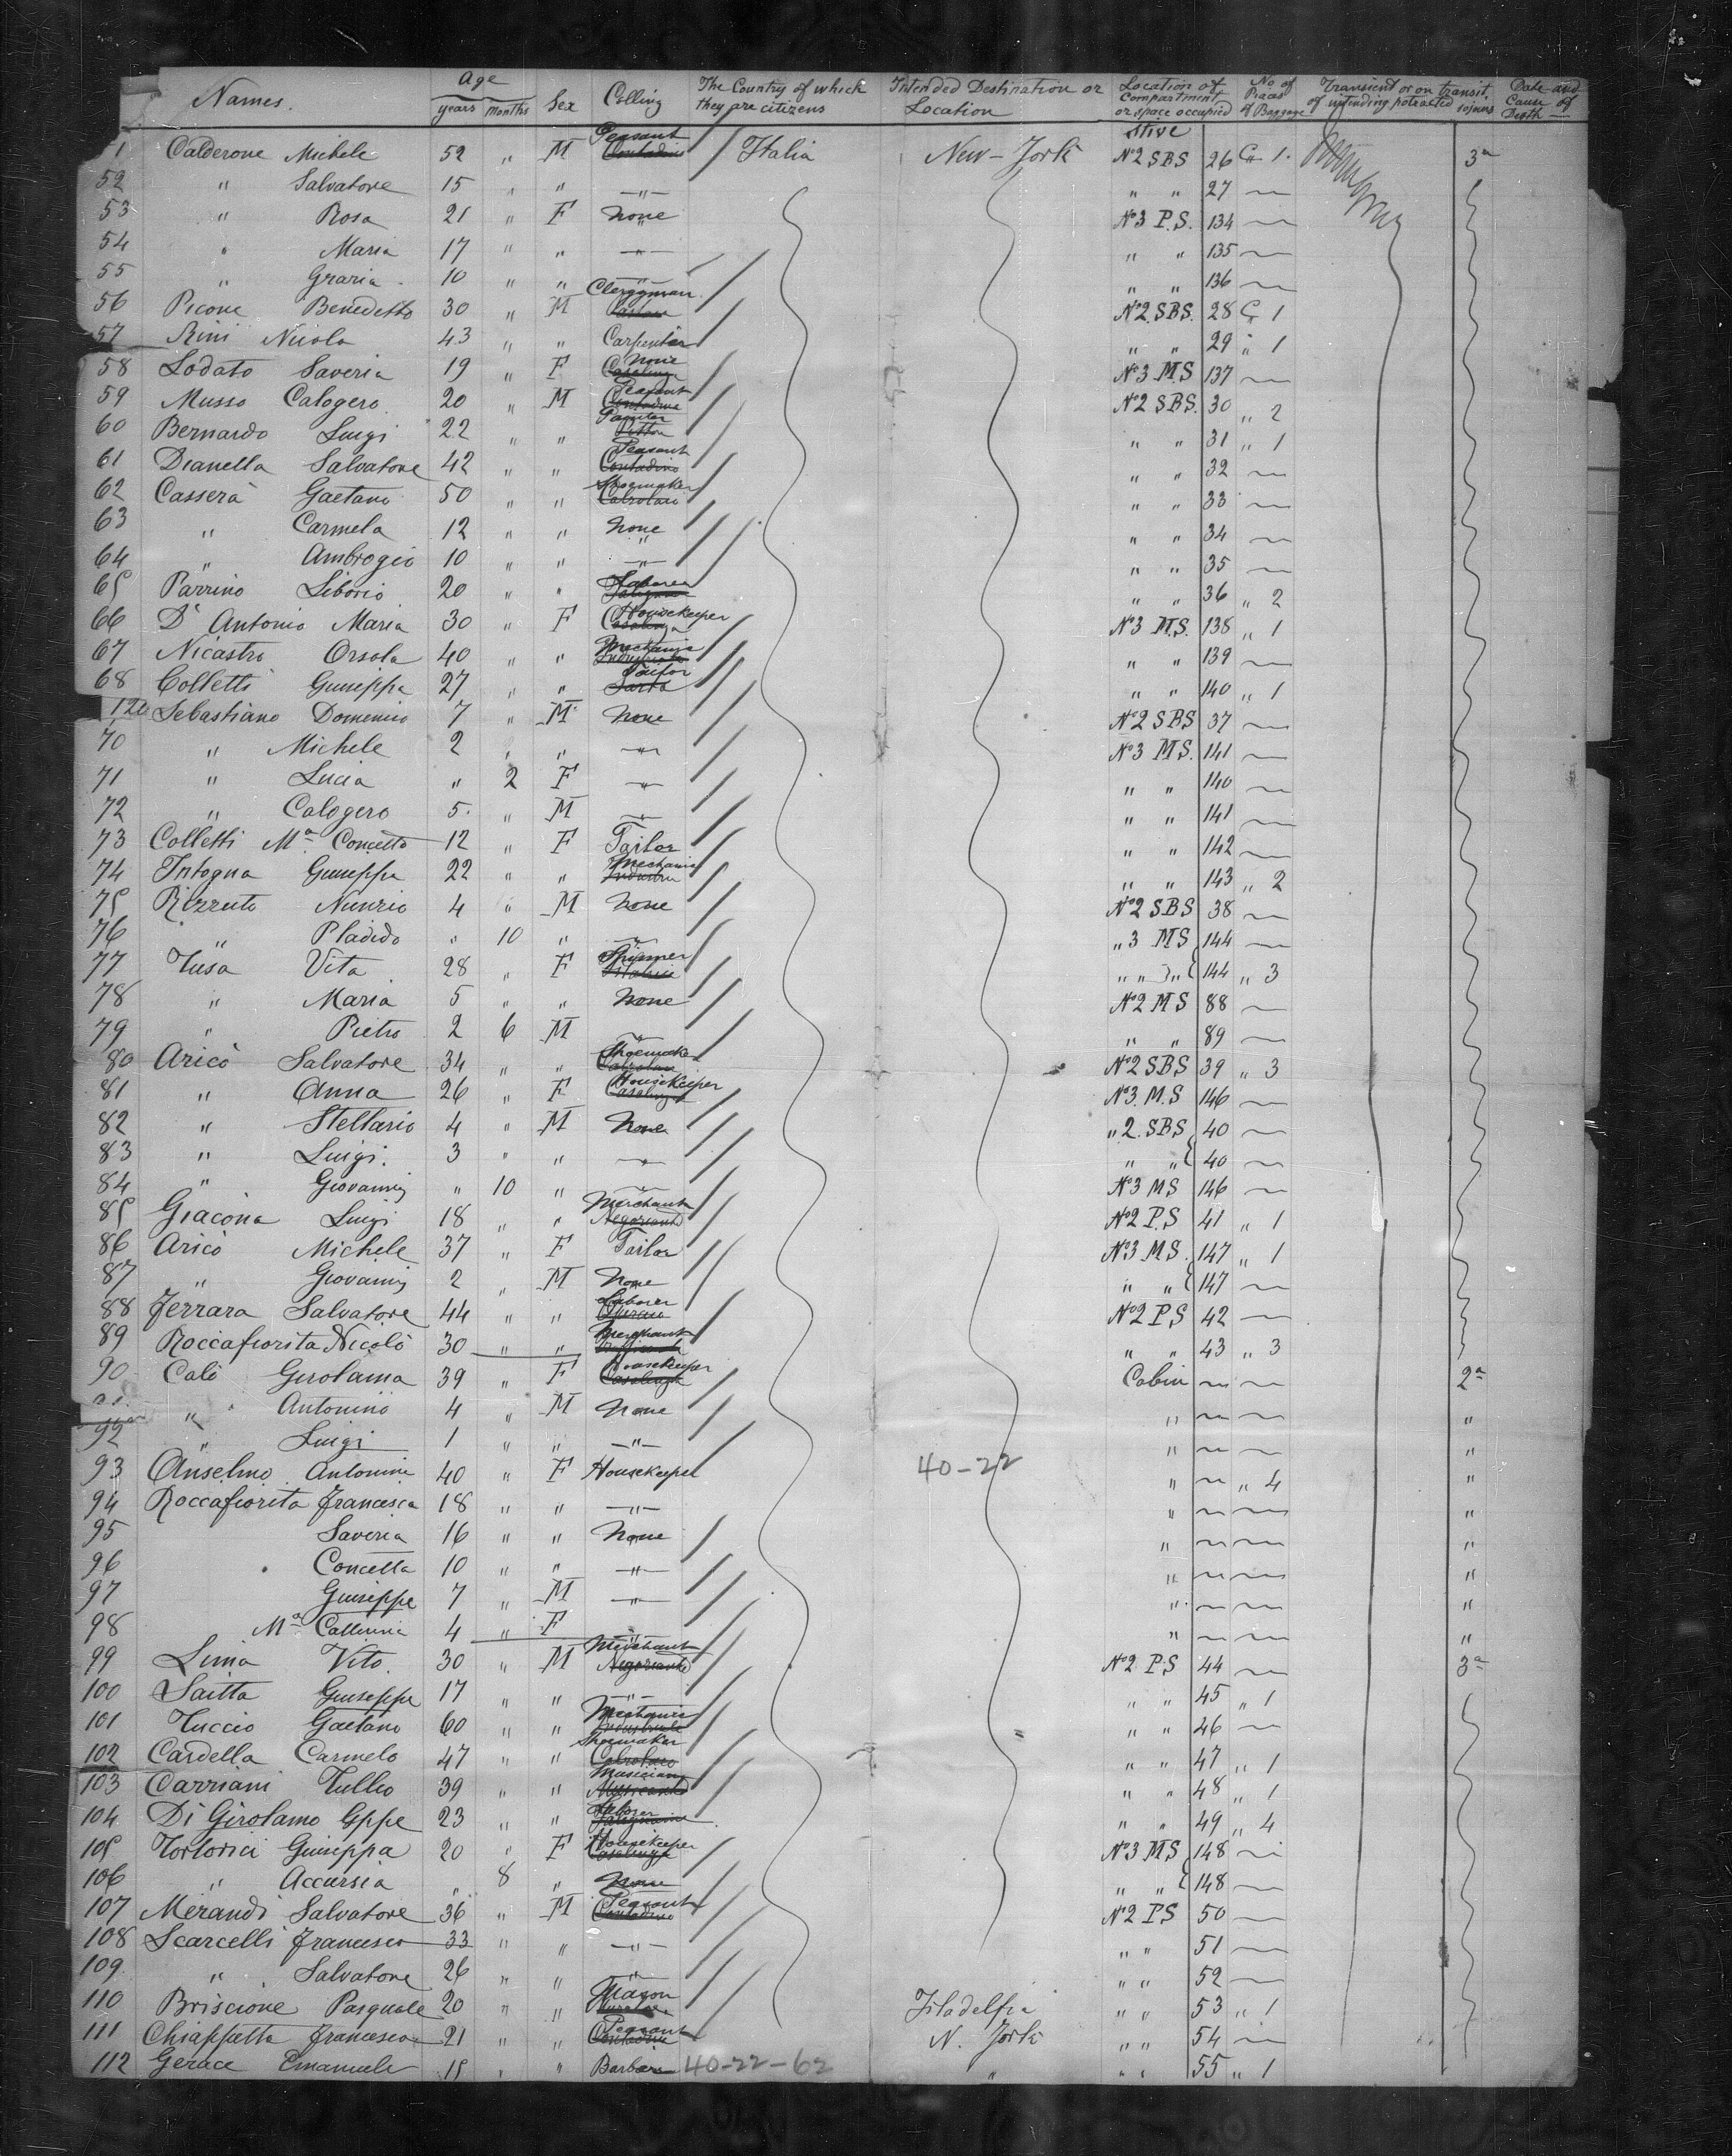 Names. Age years months Sex Calling The Country of which they are citizens Intended Destination or Location Location of compartment or space occupied No of Pieces of Baggage Transient or on transit, of intending protracted sojourn Date and Cause of Death
1 Calderone Michele 52 " M Peasant Contadino Italia New-York Stive No 2 SBS 26 C 1. 3a
52 " Salvatore 15 " " —"— " " 27 —
53 " Rosa 21 " F None No 3 P.S. 134 —
54 " Maria 17 " " —"— " " 135 —
55 " Graria 10 " " —"— " " 136 —
56 Picone Benedetto 30 " M Clergyman No 2 SBS. 28 C 1
57 Rini Nicola 43 " " Carpenter " " 29 " 1
58 Lodato Saveria 19 " F None Casalinga No 3 MS 137 —
59 Musso Calogero 20 " M Peasant Contadino No 2 SBS. 30 " 2
60 Bernardo Luigi 22 " " Painter Pittore " " 31 " 1
61 Dianella Salvatore 42 " " Peasant Contadino " " 32 —
62 Casserà Gaetano 50 " " Shoemaker Calzolaio " " 33 —
63 " Carmela 12 " " None " " 34 —
64 " Ambrogio 10 " " —"— " " 35 —
65 Parrino Liborio 20 " " Laborer " " 36 " 2
66 D'Antonio Maria 30 " F Housekeeper Casalinga No 3 M.S. 138 " 1
67 Nicastro Orsola 40 " " Mechanic " " 139 —
68 Colletti Giuseppa 27 " " Tailor Sarta " " 140 " 1
Sebastiano Domenico 7 " M None No 2 SBS 37 —
70 " Michele 2 " " —"— No 3 MS. 141 —
71 " Lucia " 2 F —"— " " 140 —
72 " Calogero 5. " M —"— " " 141 —
73 Colletti Ma Concetta 12 " F Tailor " " 142 —
74 Intogna Giuseppa 22 " " Mechanic " " 143 " 2
75 Rizzuto Nunzio 4 " M None No 2 SBS 38 —
76 " Pladido " 10 " —"— " 3 MS 144 —
77 Tusa Vita 28 " F Spinner " " " 144 " 3
78 " Maria 5 " " None No 2 MS 88 —
79 " Pietro 2 6 M —"— " " 89 —
80 Aricò Salvatore 34 " " Shoemaker Calzolaio No 2 SBS 39 " 3
81 " Anna 26 " F Housekeeper Casalinga No 3. M.S 146 —
82 " Stellario 4 " M None " 2. SBS 40 —
83 " Luigi. 3 " " —"— " " 40 —
84 " Giovanni " 10 " —"— No 3 MS 146 —
85 Giacona Luigi 18 " " Merchant Negoziante No 2 P.S 41 " 1
86 Aricò Michele 37 " F Tailor No 3 MS. 147 " 1
87 " Giovanni 2 " M None " " 147 —
88 Ferrara Salvatore 44 " " Laborer Operaio No 2 P.S 42 —
89 Roccafiorita Nicolò 30 " " Merchant " " 43 " 3
90 Calò Girolama 39 " F Housekeeper Casalinga Cabin — — 2a
" Antonino 4 " M None " — — "
92 " Luigi 1 " " —"— " — — "
93 Anselmo Antonina 40 " F Housekeeper 40-22 " — " 4 "
94 Roccafiorita Francesca 18 " " —"— " — — "
95 Saveria 16 " " None " — — "
96 Concetta 10 " " —"— " — — "
97 Giuseppe 7 " M —"— " — — "
98 Ma Catterina 4 " F —"— " — — "
99 Lima Vito 30 " M Merchant Negoziante No 2 P.S 44 — 3a
100 Saitta Giuseppe 17 " " —"— " " 45 " 1
101 Tuccio Gaetano 60 " " Mechanic " " 46 —
102 Cardella Carmelo 47 " " Shoemaker Calzolaio " " 47 " 1
103 Carriani Tullio 39 " " Musician Musicante " " 48 " 1
104 Di Girolamo Gppe 23 " " Laborer " " 49 " 4
105 Tortorici Giuseppa 20 " F Housekeeper Casalinga No 3 MS 148 —
106 " Accursia " 8 " None " " 148 —
107 Merandi Salvatore 36 " M Peasant Contadino No 2 PS 50 —
108 Scarcelli Francesco 33 " " —"— " " 51 —
109. " Salvatore 26 " " —"— " " 52 —
110 Briscione Pasquale 20 " " Mason Filadelfia " " 53 " 1
111 Chiappetta Francesco 21 " " Peasant Contadino N. York " " 54 —
112 Gerace Emanuele 15 " " Barbiere 40-22-62 " " " 55 " 1